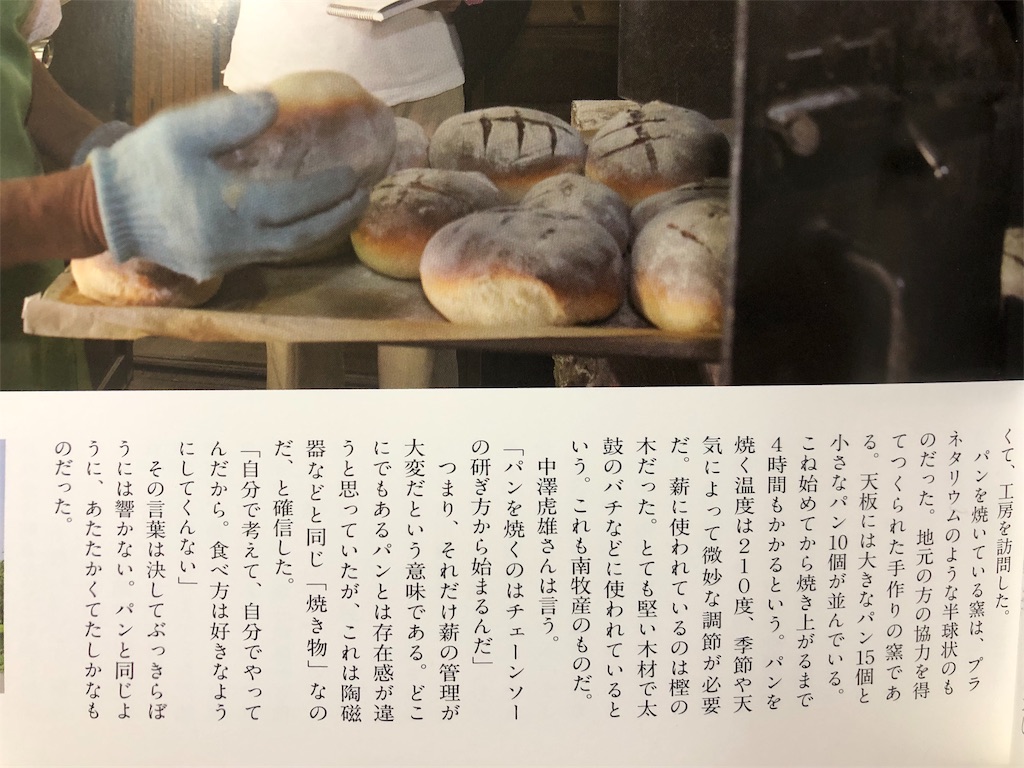 くて、工房を訪問した。
　パンを焼いている窯は、プラ
ネタリウムのような半球状のも
のだった。地元の方の協力を得
てつくられた手作りの窯であ
る。天板には大きなパン15個と
小さなパン10個が並んでいる。
こね始めてから焼き上がるまで
4時間もかかるという。パンを
焼く温度は210度、季節や天
気によって微妙な調節が必要
だ。薪に使われているのは樫の
木だった。とても堅い木材で太
鼓のバチなどに使われていると
いう。これも南牧産のものだ。
　中澤虎雄さんは言う。
「パンを焼くのはチェーンソー
の研ぎ方から始まるんだ」
　つまり、それだけ薪の管理が
大変だという意味である。どこ
にでもあるパンとは存在感が違
うと思っていたが、これは陶磁
器などと同じ「焼き物」なの
だ、と確信した。
「自分で考えて、自分でやって
んだから。食べ方は好きなよう
にしてくんない」
　その言葉は決してぶっきらぼ
うには響かない。パンと同じよ
うに、あたたかくてたしかなも
のだった。